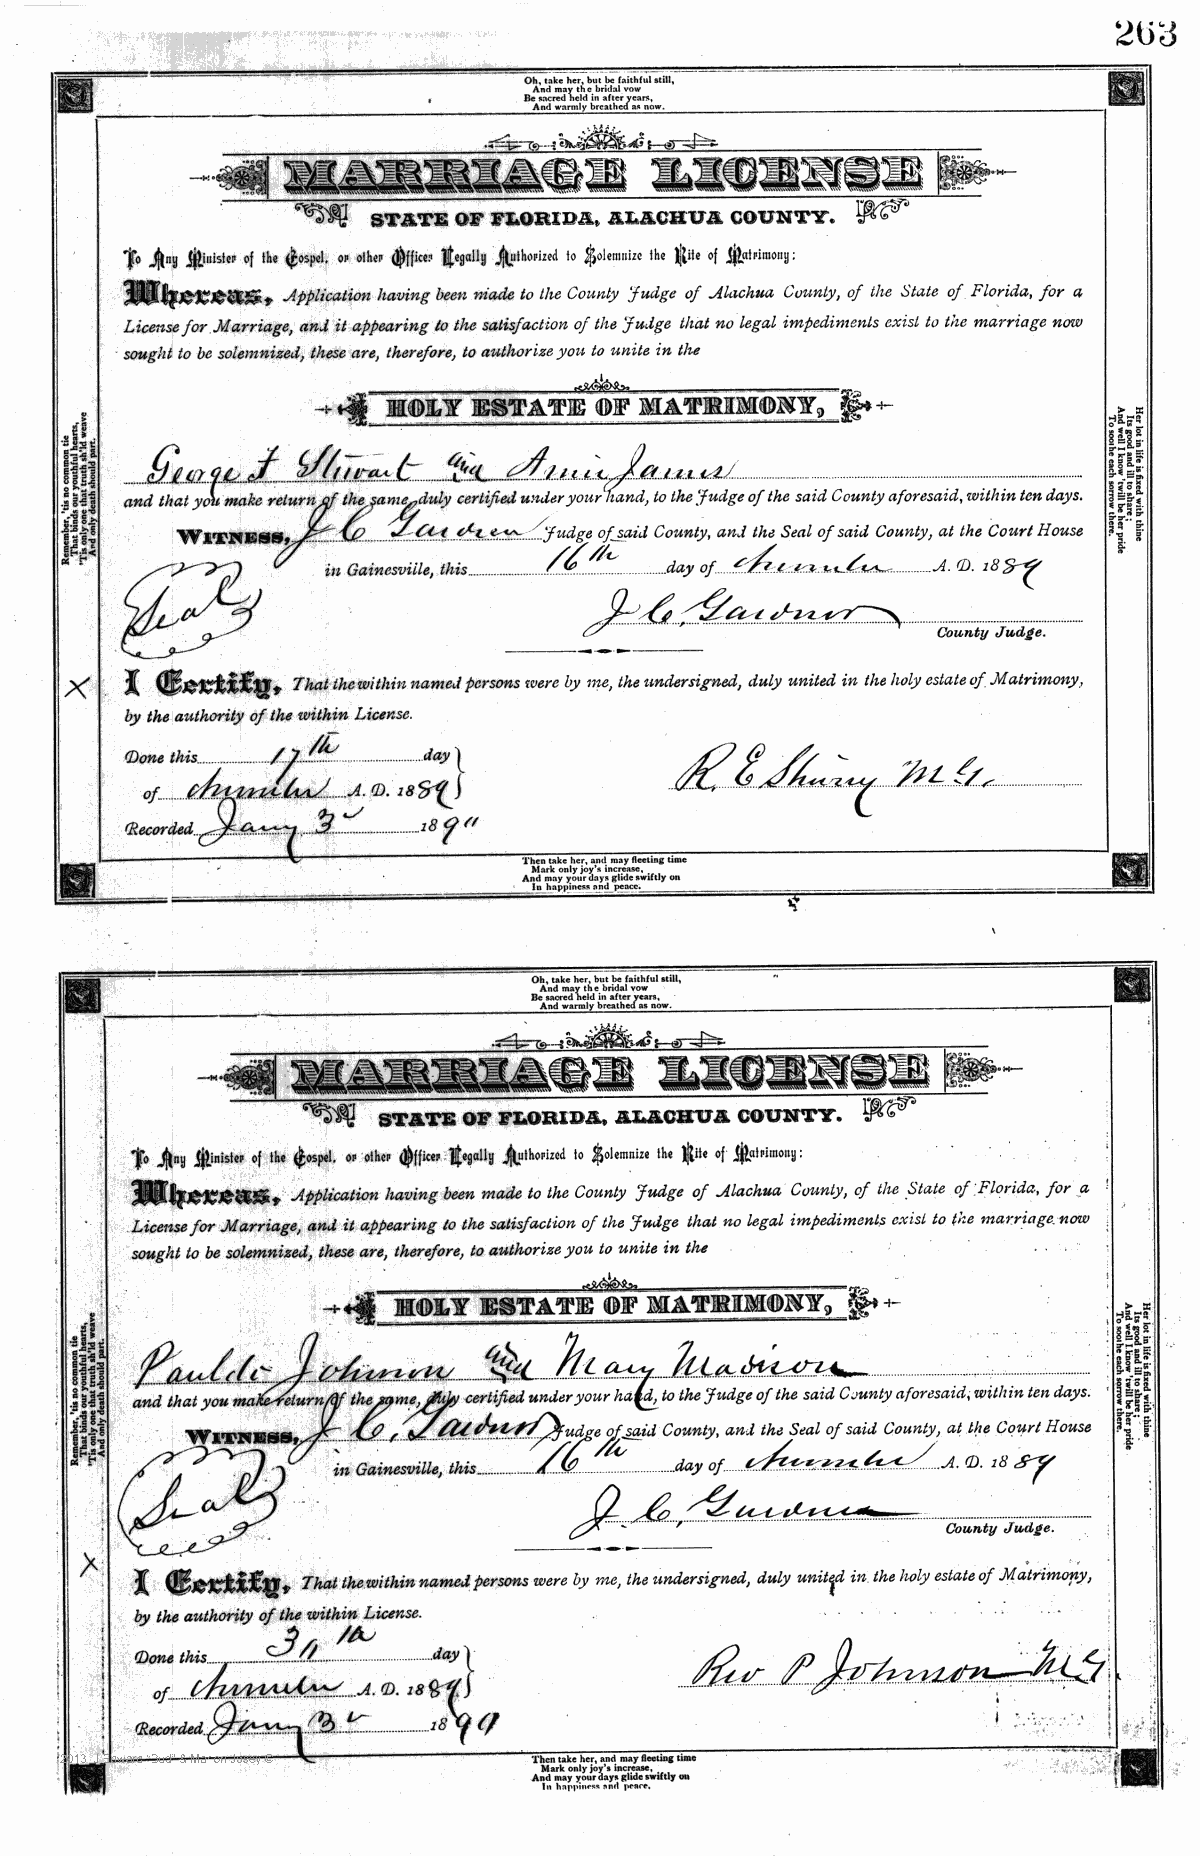 263
Oh, take her, but be faithful still,
And may the bridal vow
Be sacred held in after years,
And warmly breathed as now.
MARRIAGE LICENSE
STATE OF FLORIDA, ALACHUA COUNTY.
To Any Minister of the Gospel, or other Officer Legally Authorized to Solemnize the Rite of Matrimony:
Whereas, Application having been made to the County Judge of Alachua County, of the State of Florida, for a
License for Marriage, and it appearing to the satisfaction of the Judge that no legal impediments exist to the marriage now
sought to be solemnized, these are, therefore, to authorize you to unite in the
HOLY ESTATE OF MATRIMONY,
George F Stewart and Annie James
and that you make return of the same, duly certified under your hand, to the Judge of the said County aforesaid, within ten days.
WITNESS, J C Gardner Judge of said County, and the Seal of said County, at the Court House
in Gainesville, this 16th day of November A. D. 1889
Seal
J C. Gardner
County Judge.
X
I Certify, That the within named persons were by me, the undersigned, duly united in the holy estate of Matrimony,
by the authority of the within License.
Done this 17th day
of November A. D. 1889
R. E. M G.
Recorded Jany 3 1890
Then take her, and may fleeting time
Mark only joy's increase,
And may your days glide swiftly on
In happiness and peace.
Remember, 'tis no common tie
That binds your youthful hearts,
'Tis only one that truth sh'ld weave
And only death should part.
Her lot in life is fixed with thine
Its good and ill to share;
And well I know 'twill be her pride
To soothe each sorrow there.
Oh, take her, but be faithful still,
And may the bridal vow
Be sacred held in after years,
And warmly breathed as now.
MARRIAGE LICENSE
STATE OF FLORIDA, ALACHUA COUNTY.
To Any Minister of the Gospel, or other Officer Legally Authorized to Solemnize the Rite of Matrimony:
Whereas, Application having been made to the County Judge of Alachua County, of the State of Florida, for a
License for Marriage, and it appearing to the satisfaction of the Judge that no legal impediments exist to the marriage now
sought to be solemnized, these are, therefore, to authorize you to unite in the
HOLY ESTATE OF MATRIMONY,
Johnson and Mary Madison
and that you make return of the same, duly certified under your hand, to the Judge of the said County aforesaid, within ten days.
WITNESS, J C. Gardner Judge of said County, and the Seal of said County, at the Court House
in Gainesville, this 16th day of November A. D. 1889
Seal
J. C. Gardner
County Judge.
X
I Certify, That the within named persons were by me, the undersigned, duly united in the holy estate of Matrimony,
by the authority of the within License.
Done this 30th day
of November A. D. 1889
Rev P Johnson M G
Recorded Jany 3 1890
Then take her, and may fleeting time
Mark only joy's increase,
And may your days glide swiftly on
In happiness and peace.
Remember, 'tis no common tie
That binds your youthful hearts,
'Tis only one that truth sh'ld weave
And only death should part.
Her lot in life is fixed with thine
Its good and ill to share;
And well I know 'twill be her pride
To soothe each sorrow there.